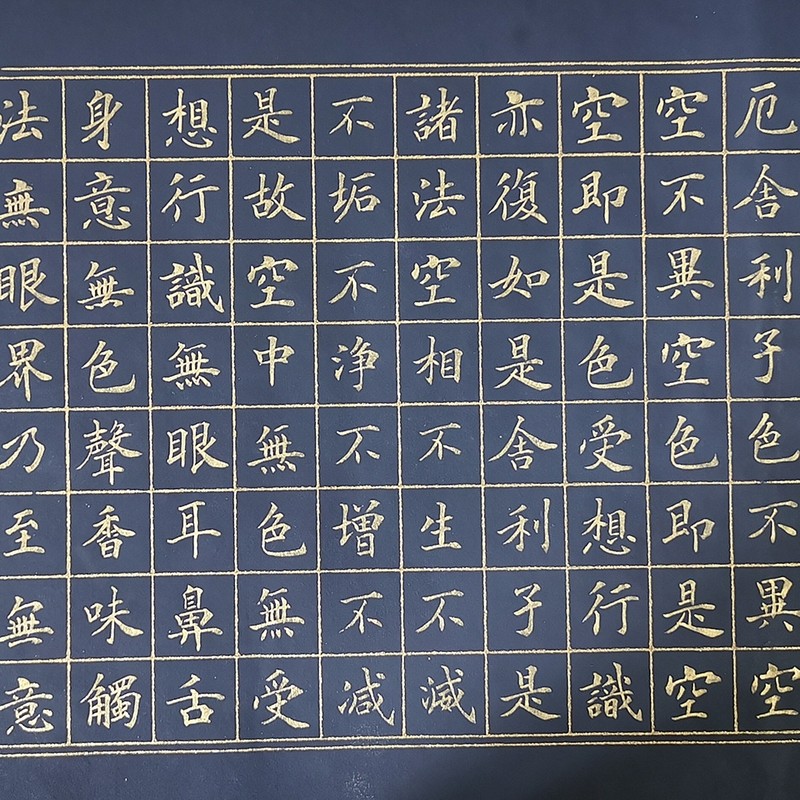 厄舍利子色不異空
空不異空色即是空
空即是色受想行識
亦復如是舍利子是
諸法空相不生不滅
不垢不淨不增不減
是故空中無色無受
想行識無眼耳鼻舌
身意無色聲香味觸
法無眼界乃至無意